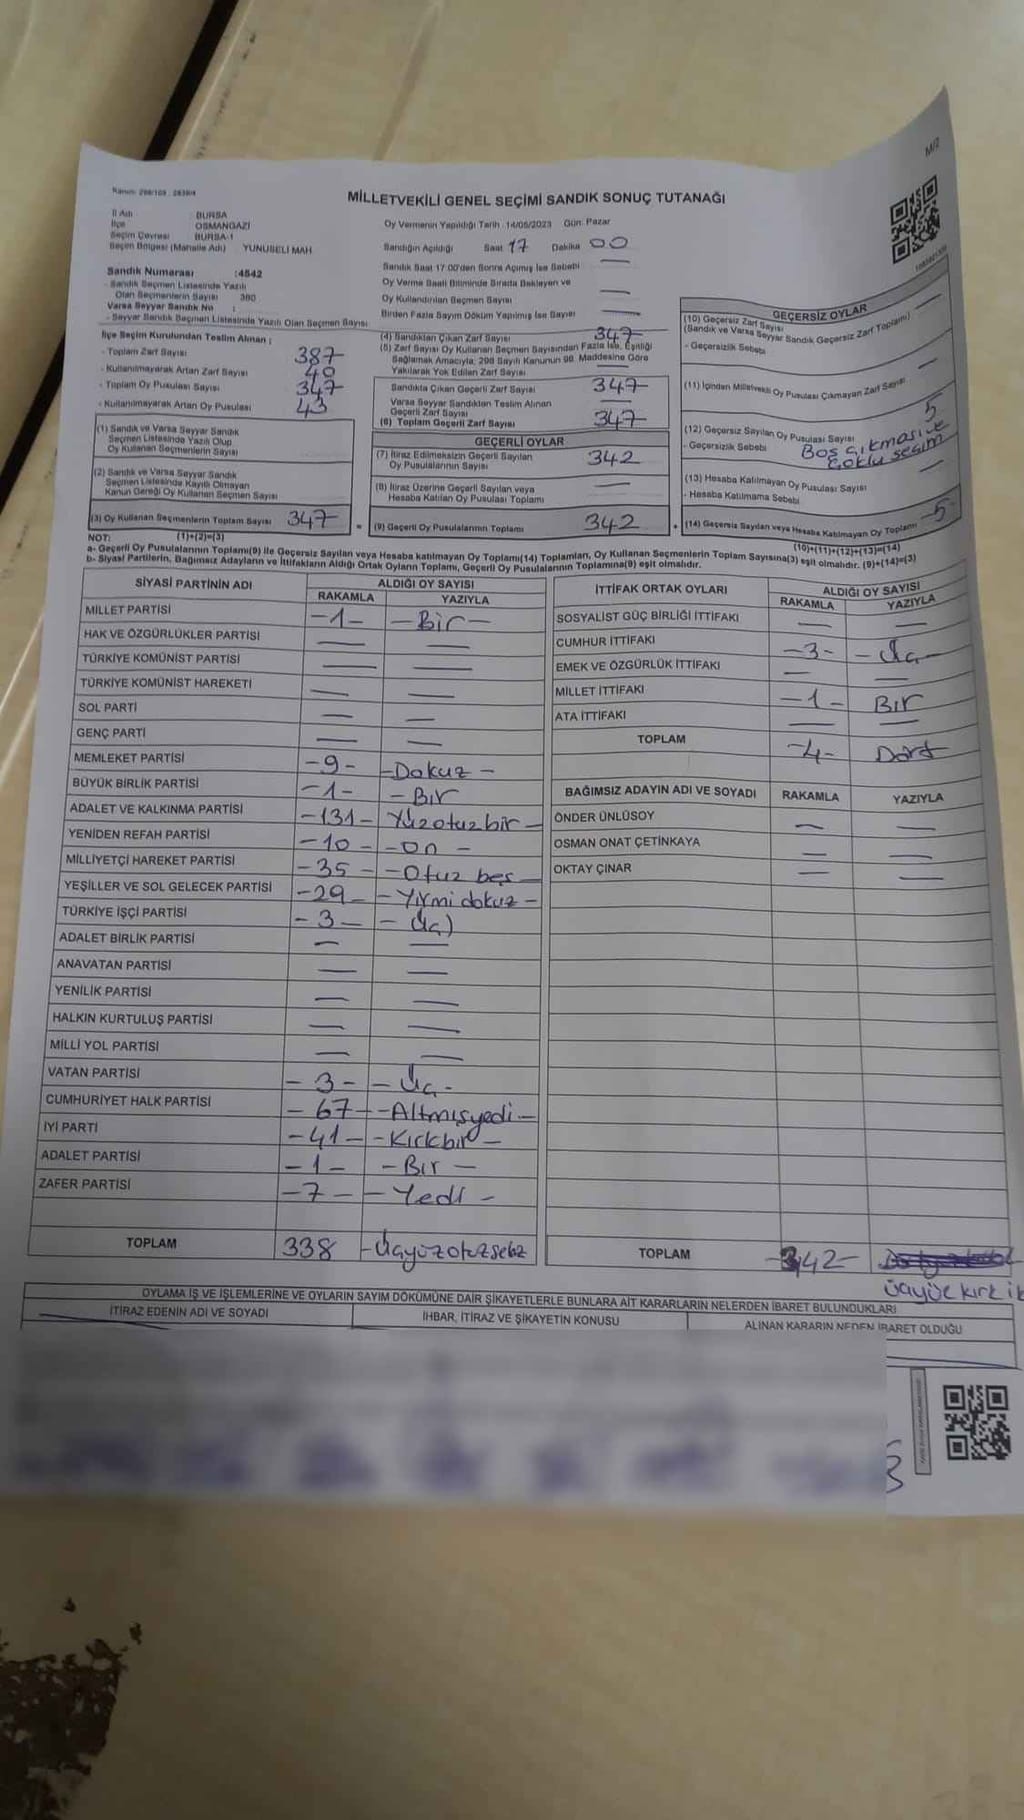 M/2
MİLLETVEKİLİ GENEL SEÇİMİ SANDIK SONUÇ TUTANAĞI
İl Adı : BURSA
İlçe : OSMANGAZİ
Seçim Çevresi : BURSA-1
Seçim Bölgesi (Mahalle Adı) YUNUSELİ MAH.
Sandık Numarası :4542
- Sandık Seçmen Listesinde Yazılı
Olan Seçmenlerin Sayısı 380
Varsa Seyyar Sandık No :
- Seyyar Sandık Seçmen Listesinde Yazılı Olan Seçmen Sayısı
Oy Vermenin Yapıldığı Tarih : 14/05/2023 Gün: Pazar
Sandığın Açıldığı Saat 17 Dakika 00
Sandık Saat 17:00'den Sonra Açılmış İse Sebebi —
Oy Verme Saati Bitiminde Sırada Bekleyen ve
Oy Kullandırılan Seçmen Sayısı —
Birden Fazla Sayım Döküm Yapılmış İse Sayısı —
İlçe Seçim Kurulundan Teslim Alınan ;
- Toplam Zarf Sayısı 387
- Kullanılmayarak Artan Zarf Sayısı 40
- Toplam Oy Pusulası Sayısı 347
- Kullanılmayarak Artan Oy Pusulası 43
(1) Sandık ve Varsa Seyyar Sandık
Seçmen Listesinde Yazılı Olup
Oy Kullanan Seçmenlerin Sayısı
(2) Sandık ve Varsa Seyyar Sandık
Seçmen Listesinde Kayıtlı Olmayan
Kanun Gereği Oy Kullanan Seçmen Sayısı
(3) Oy Kullanan Seçmenlerin Toplam Sayısı 347
(1)+(2)=(3)
(4) Sandıktan Çıkan Zarf Sayısı 347
(5) Zarf Sayısı Oy Kullanan Seçmen Sayısından Fazla İse, Eşitliği
Sağlamak Amacıyla, 298 Sayılı Kanunun 98. Maddesine Göre
Yakılarak Yok Edilen Zarf Sayısı —
Sandıkta Çıkan Geçerli Zarf Sayısı 347
Varsa Seyyar Sandıktan Teslim Alınan
Geçerli Zarf Sayısı —
(6) Toplam Geçerli Zarf Sayısı 347
GEÇERLİ OYLAR
(7) İtiraz Edilmeksizin Geçerli Sayılan
Oy Pusulalarının Sayısı 342
(8) İtiraz Üzerine Geçerli Sayılan veya
Hesaba Katılan Oy Pusulası Toplamı —
= (9) Geçerli Oy Pusulalarının Toplamı 342
GEÇERSİZ OYLAR
(10) Geçersiz Zarf Sayısı
(Sandık ve Varsa Seyyar Sandık Geçersiz Zarf Toplamı) —
- Geçersizlik Sebebi
(11) İçinden Milletvekili Oy Pusulası Çıkmayan Zarf Sayısı —
(12) Geçersiz Sayılan Oy Pusulası Sayısı 5
- Geçersizlik Sebebi Boş çıkması ve
çoklu seçim
(13) Hesaba Katılmayan Oy Pusulası Sayısı —
- Hesaba Katılmama Sebebi
+ (14) Geçersiz Sayılan veya Hesaba Katılmayan Oy Toplamı -5-
(10)+(11)+(12)+(13)=(14)
NOT:
a- Geçerli Oy Pusulalarının Toplamı(9) ile Geçersiz Sayılan veya Hesaba katılmayan Oy Toplamı(14) Toplamları, Oy Kullanan Seçmenlerin Toplam Sayısına(3) eşit olmalıdır. (9)+(14)=(3)
b- Siyasi Partilerin, Bağımsız Adayların ve İttifakların Aldığı Ortak Oyların Toplamı, Geçerli Oy Pusulalarının Toplamına(9) eşit olmalıdır.
SİYASİ PARTİNİN ADI ALDIĞI OY SAYISI
RAKAMLA YAZIYLA
MİLLET PARTİSİ -1- -Bir-
HAK VE ÖZGÜRLÜKLER PARTİSİ — —
TÜRKİYE KOMÜNİST PARTİSİ — —
TÜRKİYE KOMÜNİST HAREKETİ — —
SOL PARTİ — —
GENÇ PARTİ — —
MEMLEKET PARTİSİ -9- -Dokuz-
BÜYÜK BİRLİK PARTİSİ -1- -Bir
ADALET VE KALKINMA PARTİSİ -131- Yüzotuzbir-
YENİDEN REFAH PARTİSİ -10- -On-
MİLLİYETÇİ HAREKET PARTİSİ -35- -Otuz beş-
YEŞİLLER VE SOL GELECEK PARTİSİ -29- -Yirmi dokuz-
TÜRKİYE İŞÇİ PARTİSİ -3- -Üç)
ADALET BİRLİK PARTİSİ — —
ANAVATAN PARTİSİ — —
YENİLİK PARTİSİ — —
HALKIN KURTULUŞ PARTİSİ — —
MİLLİ YOL PARTİSİ — —
VATAN PARTİSİ -3- -Üç-
CUMHURİYET HALK PARTİSİ -67- -Altmışyedi-
İYİ PARTİ -41- -Kırkbir-
ADALET PARTİSİ -1- -Bir-
ZAFER PARTİSİ -7- -Yedi-
TOPLAM 338 -Üçyüzotuzsekiz
İTTİFAK ORTAK OYLARI ALDIĞI OY SAYISI
RAKAMLA YAZIYLA
SOSYALİST GÜÇ BİRLİĞİ İTTİFAKI — —
CUMHUR İTTİFAKI -3- -Üç-
EMEK VE ÖZGÜRLÜK İTTİFAKI — —
MİLLET İTTİFAKI -1- Bir
ATA İTTİFAKI — —
TOPLAM -4- Dört
BAĞIMSIZ ADAYIN ADI VE SOYADI RAKAMLA YAZIYLA
ÖNDER ÜNLÜSOY — —
OSMAN ONAT ÇETİNKAYA — —
OKTAY ÇINAR — —
TOPLAM -342-
üçyüz kırk ik
OYLAMA İŞ VE İŞLEMLERİNE VE OYLARIN SAYIM DÖKÜMÜNE DAİR ŞİKAYETLERLE BUNLARA AİT KARARLARIN NELERDEN İBARET BULUNDUKLARI
İTİRAZ EDENİN ADI VE SOYADI İHBAR, İTİRAZ VE ŞİKAYETİN KONUSU ALINAN KARARIN NEDEN İBARET OLDUĞU